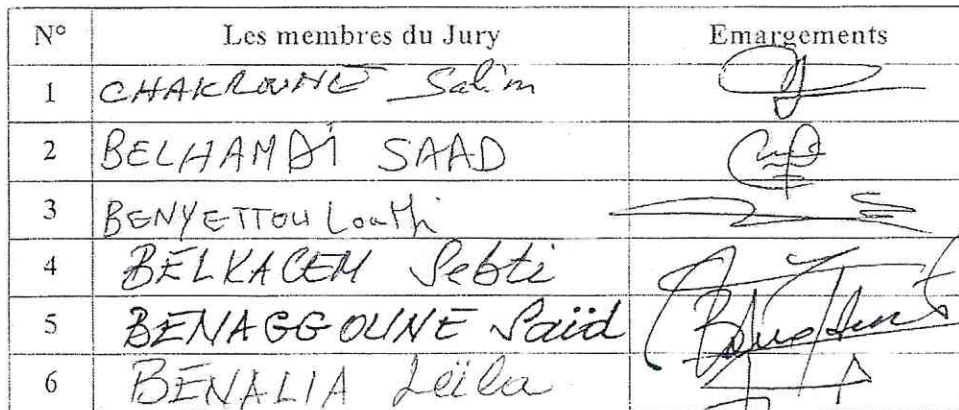 N° Les membres du Jury Emargements
1 CHAKROUNE Salim
2 BELHAMDI SAAD
3 BENYETTOU Louthi
4 BELKACEM Sebti
5 BENAGGOUNE Saïd
6 BENALIA Leïla